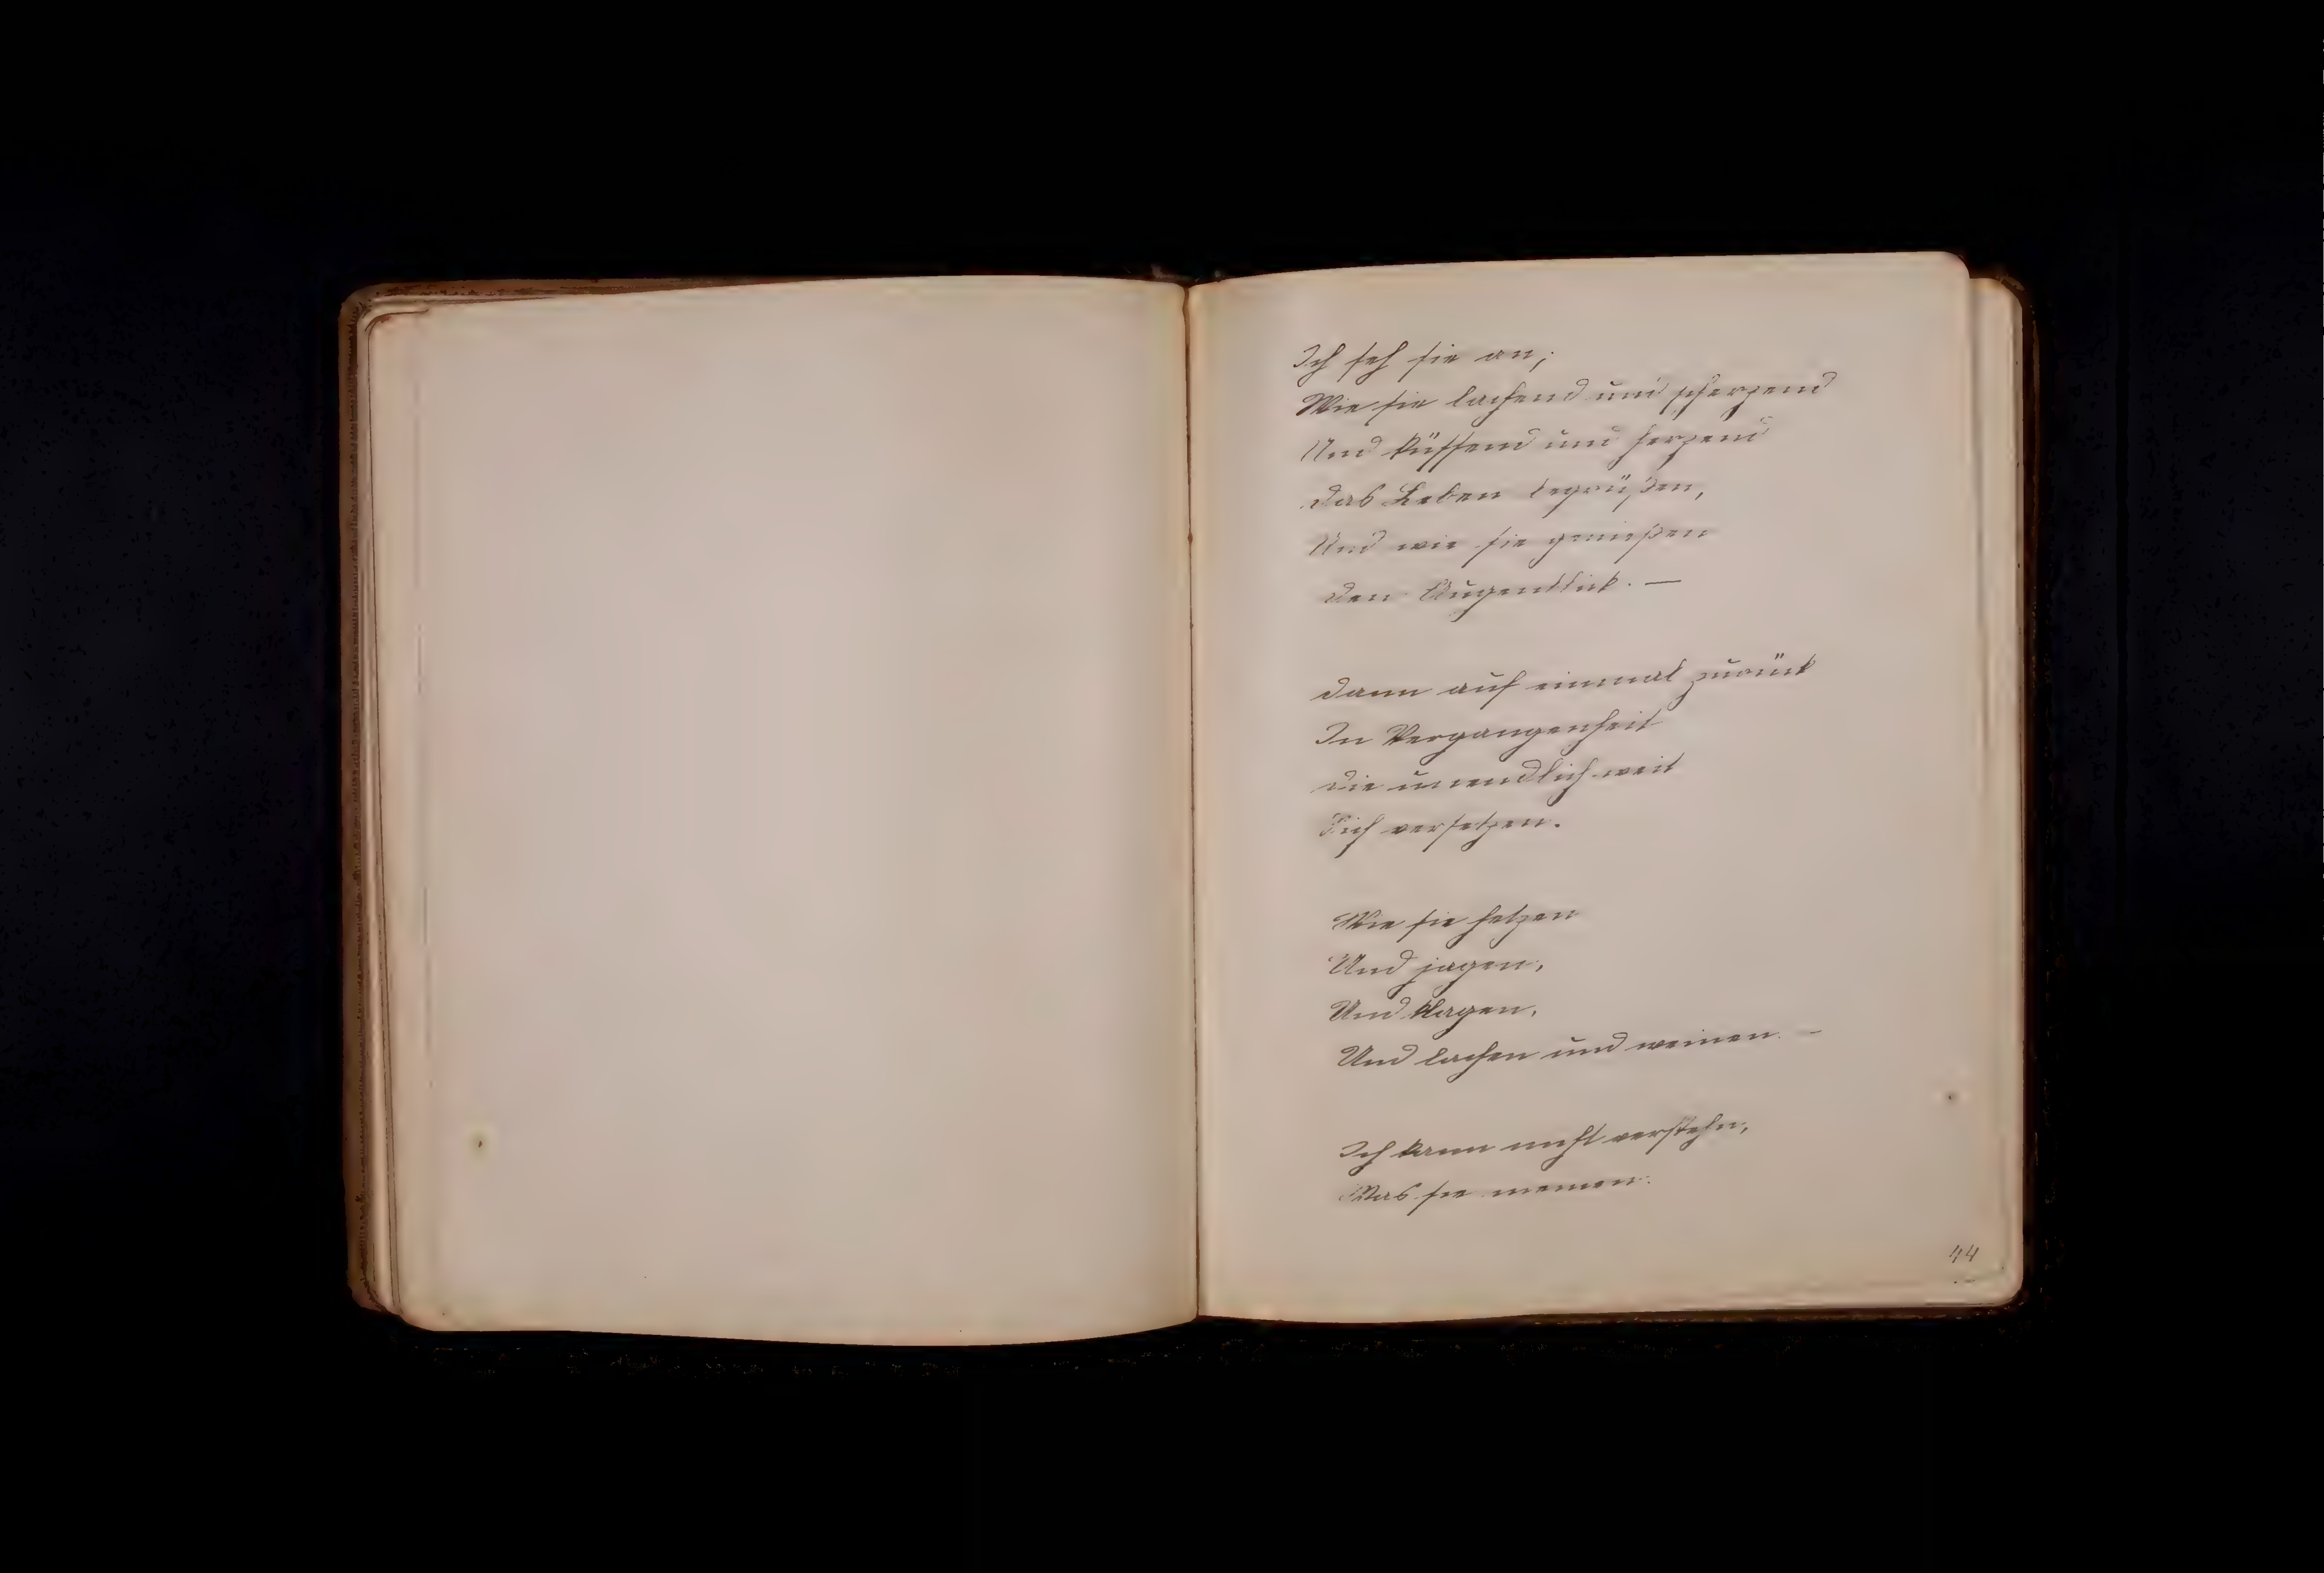 Ich seh sie an;
Wie sie lachend und scherzend
Und küssend und herzend
Das Leben begrüßen,
Und wie sie genießen
Den Augenblick. —
Dann auf einmal zurück
In Vergangenheit
Die unendlich weit
Sich versetzen.
Wie sie hetzen
Und jagen,
Und klagen,
Und lachen und weinen. –
Ich kann nicht verstehn,
Was sie meinen.
44